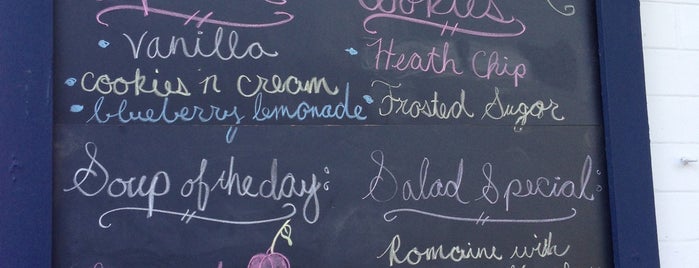 Cookies
• Vanilla
• Cookies 'n Cream
• blueberry lemonade
• Heath Chip
• Frosted Sugar
Soup of the day:
Salad Special:
Romaine with